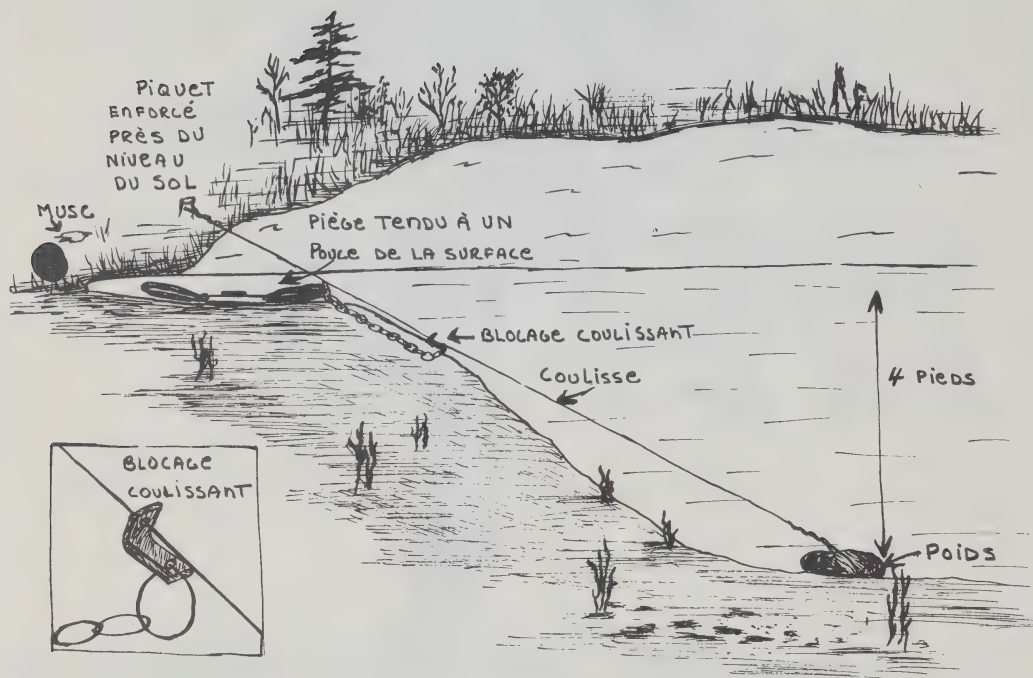 PIQUET
ENFORCÉ
PRÈS DU
NIVEAU
DU SOL
MUSC
PIÈGE TENDU À UN
POUCE DE LA SURFACE
BLOCAGE COULISSANT
COULISSE
4 PIEDS
BLOCAGE
COULISSANT
POIDS